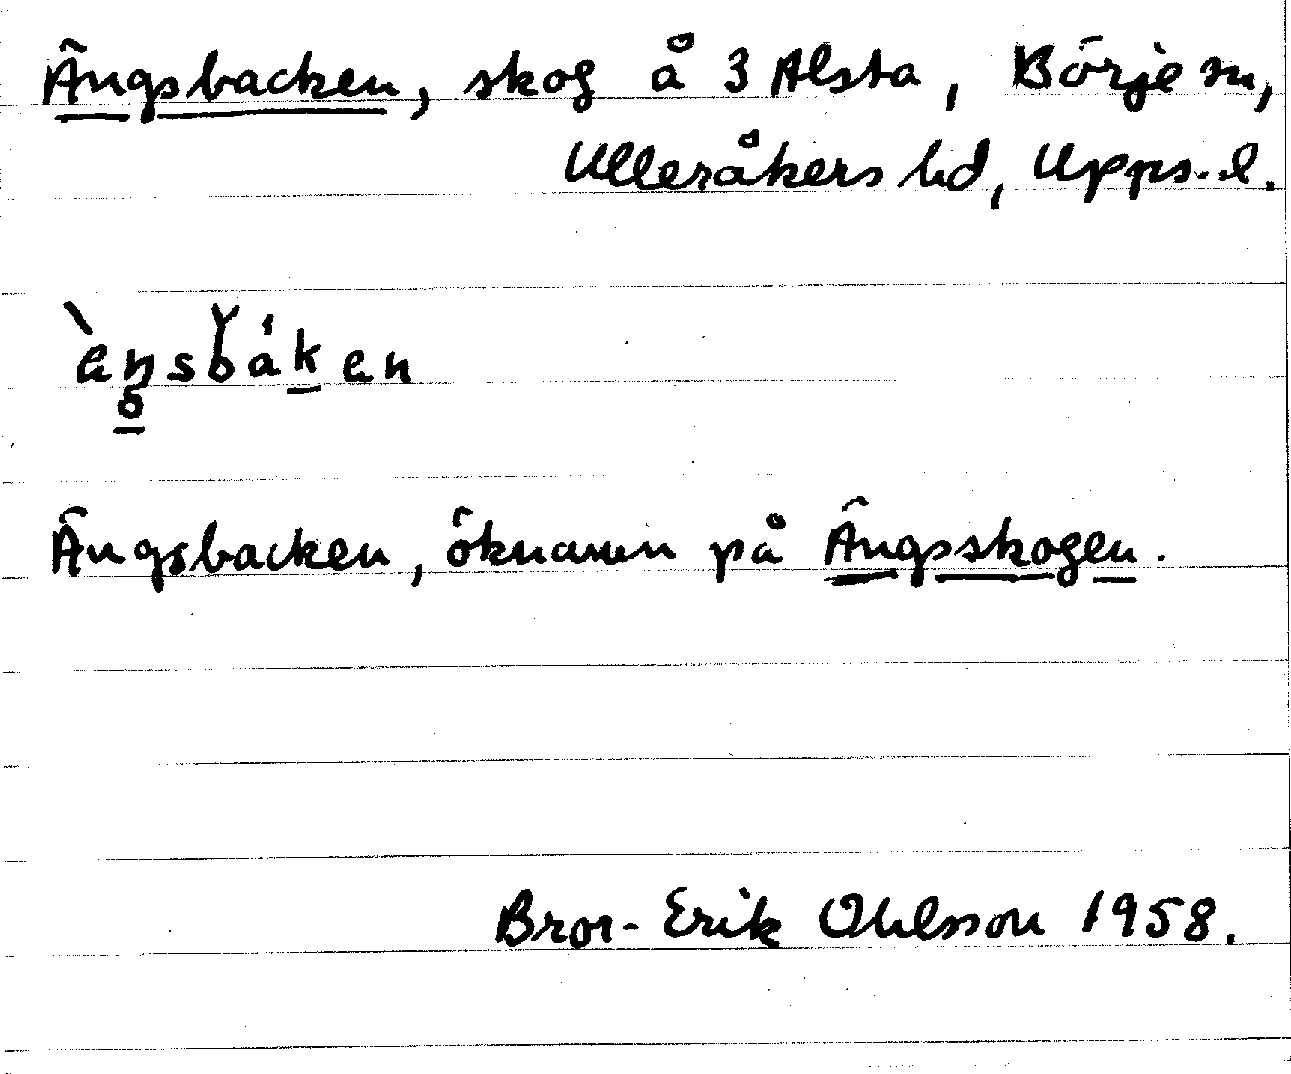 Ängsbacken, skog å 3 Alsta, Börje sn,
Ulleråkers hd, Upps. l.
Ängsbacken, öknamn på Ängsskogen.
Bror-Erik Ohlsson 1958.